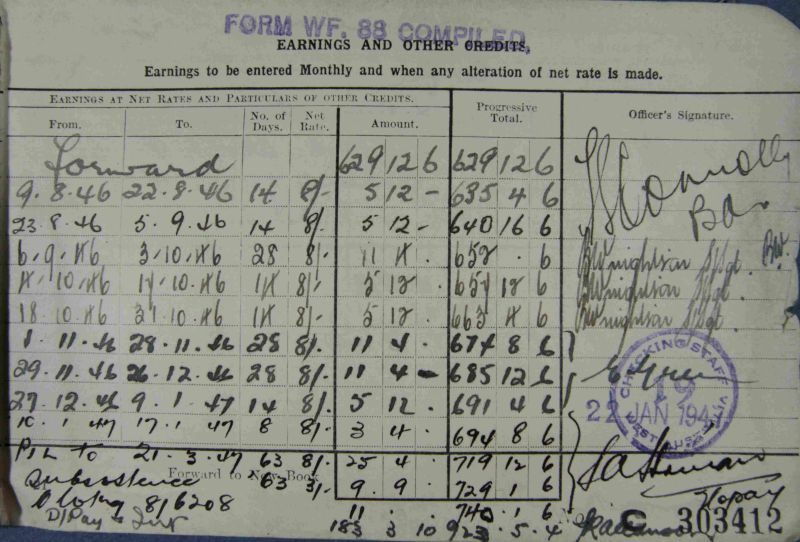 FORM WF. 88 COMPILED.
EARNINGS AND OTHER CREDITS.
Earnings to be entered Monthly and when any alteration of net rate is made.
EARNINGS AT NET RATES AND PARTICULARS OF OTHER CREDITS.
From. To. No. of Days. Net Rate. Amount. Progressive Total. Officer's Signature.
Forward 629 12 6 629 12 6
9.8.46 22.8.46 14 8/- 5 12 - 635 4 6
23.8.46 5.9.46 14 8/- 5 12 - 640 16 6
6.9.46 3.10.46 28 8/- 11 4 . 652 . 6
4.10.46 17.10.46 14 8/- 5 12 657 12 6
18.10.46 31.10.46 14 8/- 5 12 . 663 4 6
1.11.46 28.11.46 28 8/- 11 4 . 674 8 6
29.11.46 26.12.46 28 8/- 11 4 - 685 12 6
27.12.46 9.1.47 14 8/- 5 12 . 691 4 6
10.1.47 17.1.47 8 8/- 3 4 . 694 8 6
CHECKING STAFF
19
22 JAN 194
Pin to 21.3.47 63 8/- 25 4 719 12 6
Subsistence 63 3/- 9 . 9 . 729 . 1 6
Forward to New Book
816208 11 . 740 . 1 6
D/Pay 183 3 10 923 . 5 . 4
303412